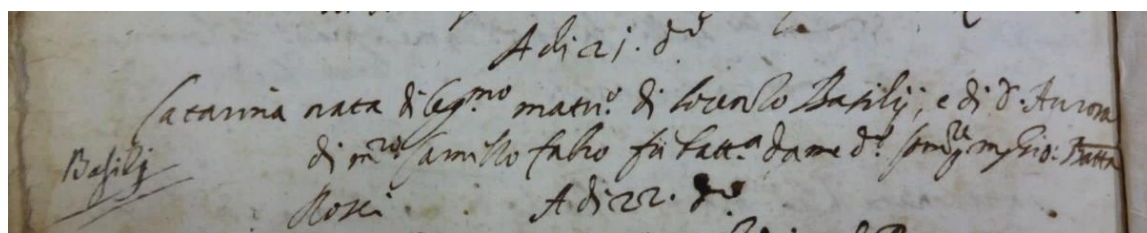 A di 21. do
Catarina nata di legmo matrio di Lorenzo Basilij, e di D. Aurora
Basilij
di mro Camillo fabro fù batta da me do Comre mg Gio: Batta
Rosci A di 22. do